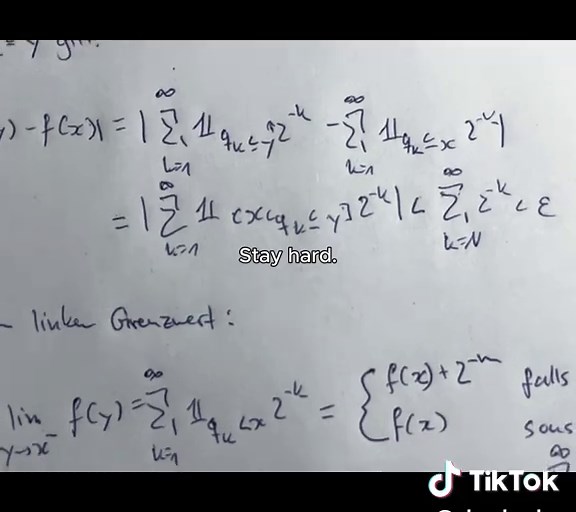 = y gilt.
y) - f(x)| = | ∑_{k=1}^{∞} 𝟙_{q_k ≤ y} 2^{-k} - ∑_{k=1}^{∞} 𝟙_{q_k ≤ x} 2^{-k} |
= | ∑_{k=1}^{∞} 𝟙 {x < q_k ≤ y} 2^{-k} | < ∑_{k=N}^{∞} 2^{-k} < ε
Stay hard.
linken Grenzwert:
lim_{y→x^-} f(y) = ∑_{k=1}^{∞} 𝟙_{q_k < x} 2^{-k} = { f(x) + 2^{-m} falls
f(x) sons
∞
TikTok